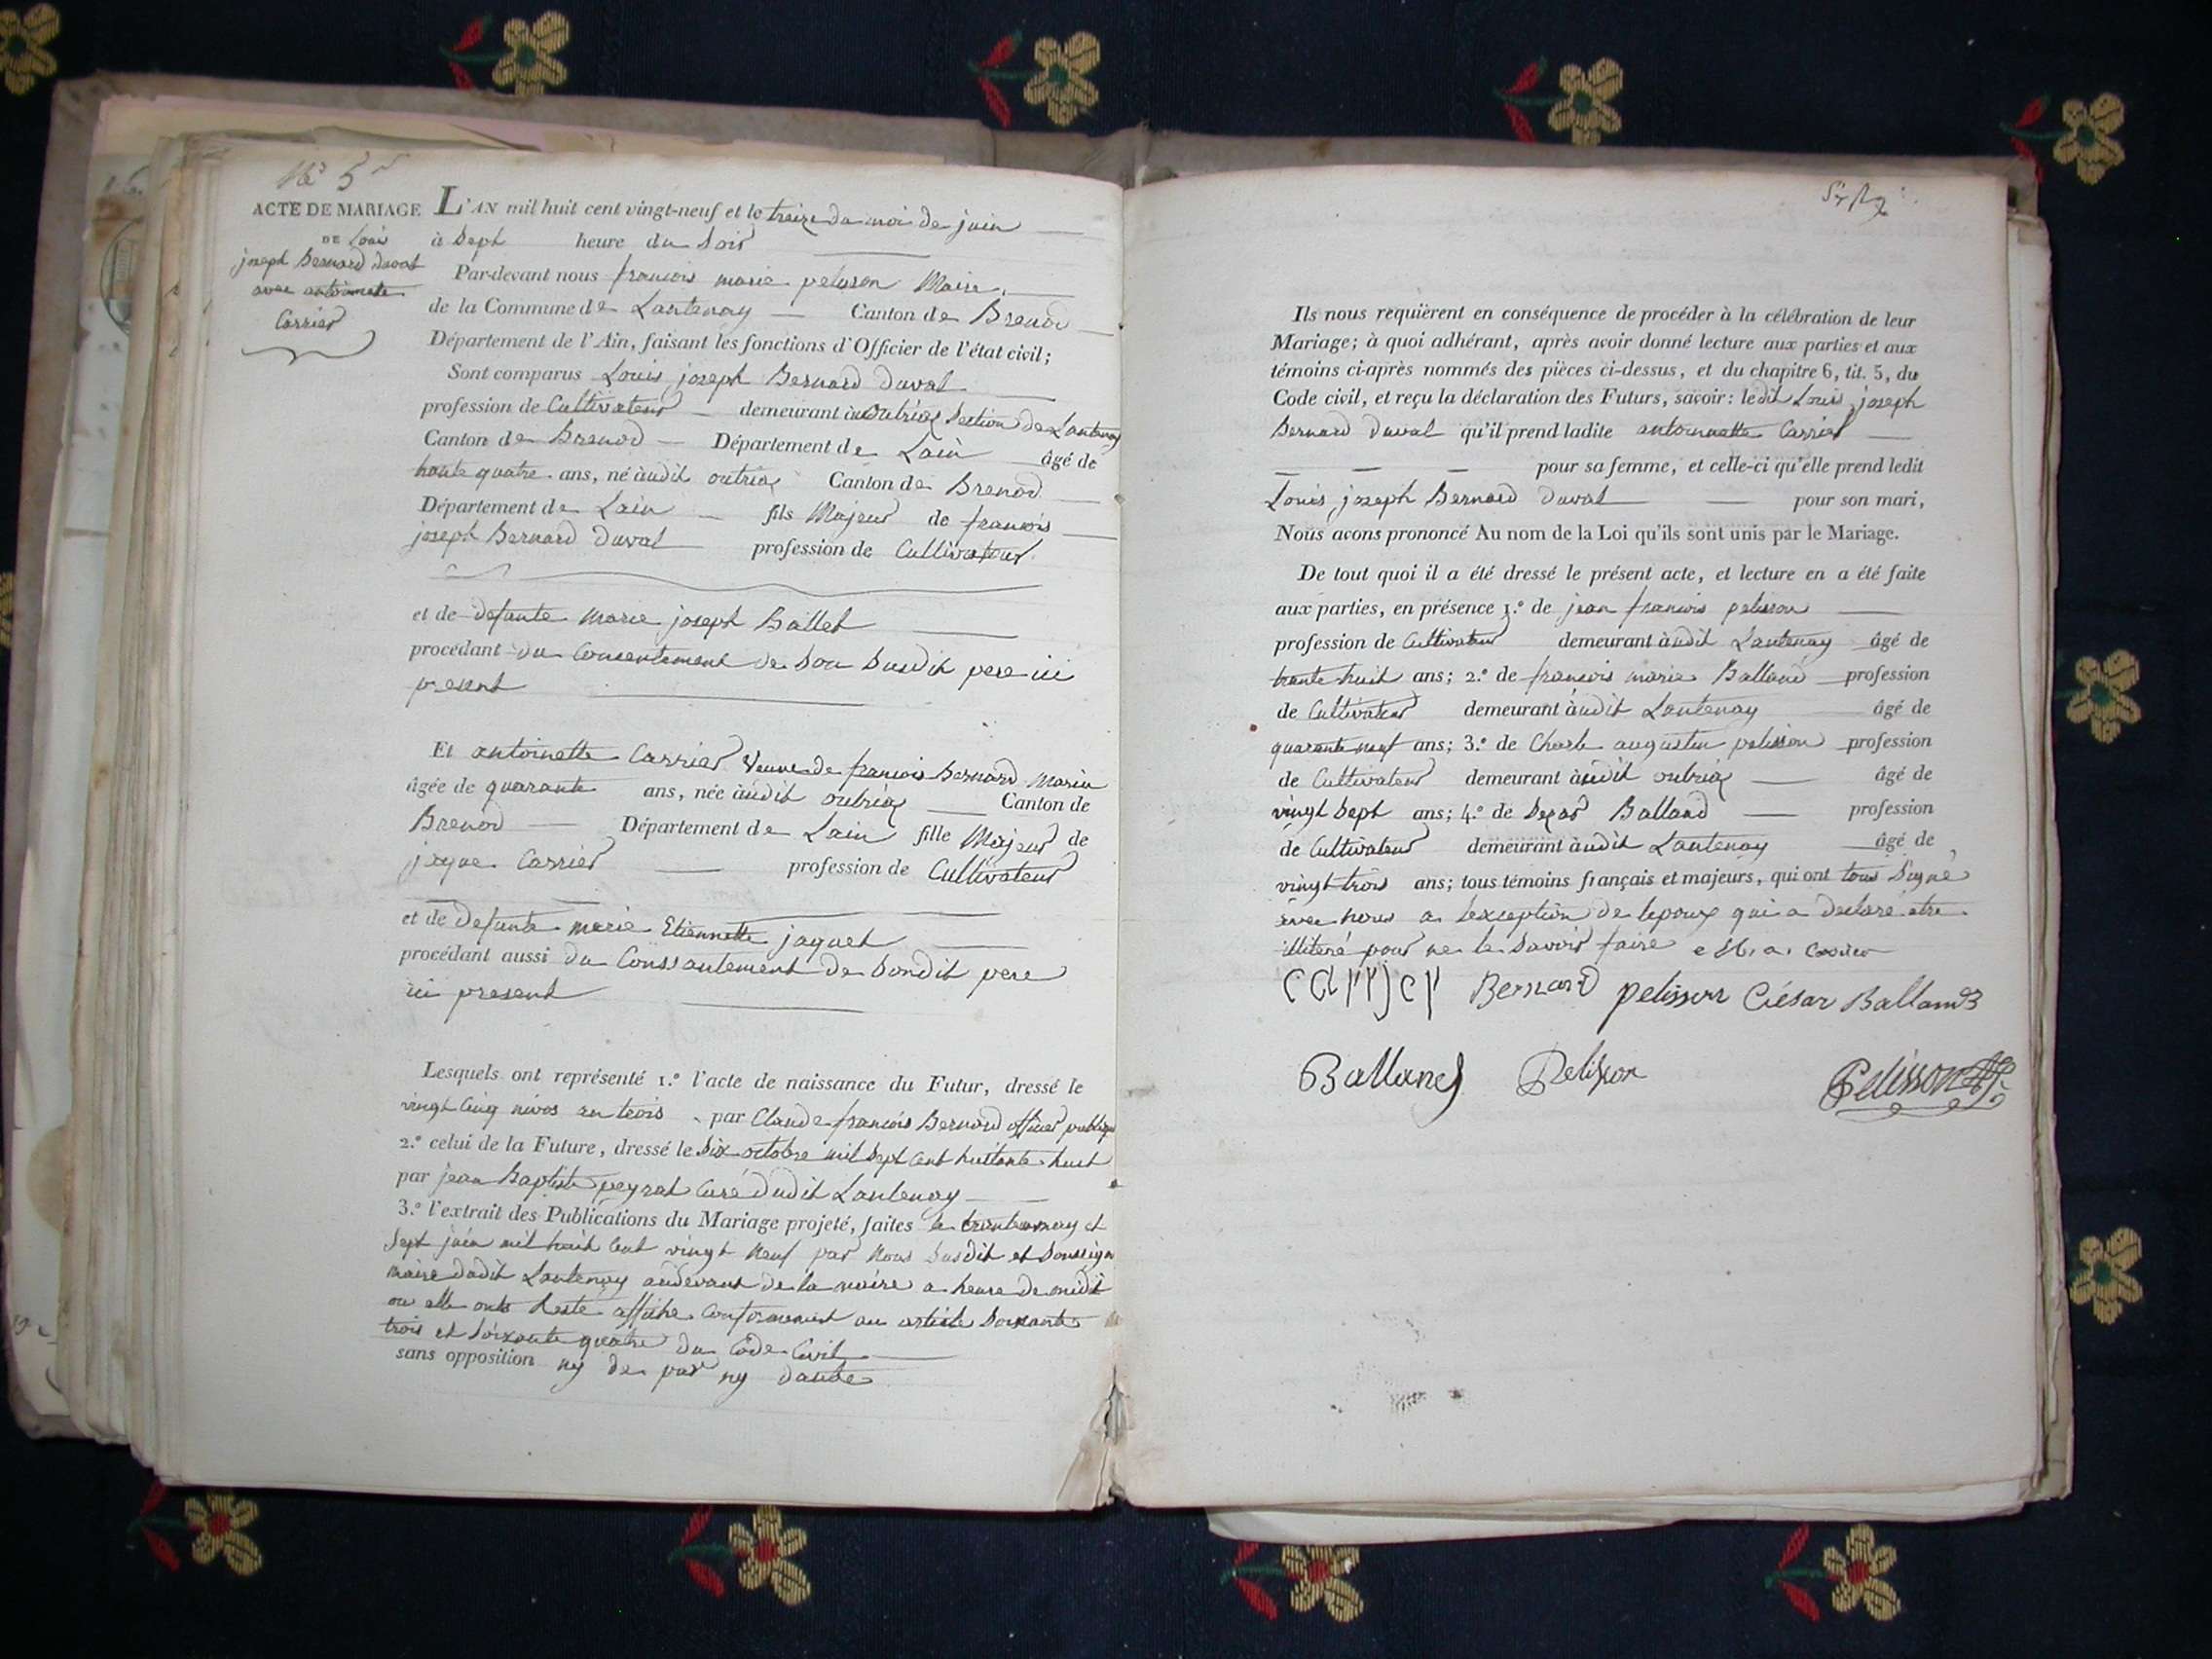 No 5
ACTE DE MARIAGE
DE Louis
joseph Bernard duval
avec antoinette
Carrier
L'AN mil huit cent vingt-neuf et le treize du moi de juin
à Sept heure du Soir
Par-devant nous francois marie pelisson Maire
de la Commune de Lantenay Canton de Brenod
Département de l'Ain, faisant les fonctions d'Officier de l'état civil;
Sont comparus Louis joseph Bernard duval
profession de Cultivateur demeurant à outriaz Section de Lantenay
Canton de Brenod Département de Lain âgé de
trante quatre ans, né àudit outriaz Canton de Brenod
Département de Lain fils Majeur de francois
joseph Bernard duval profession de Cultivateur
et de defunte marie joseph Ballet
procédant du Consentement de Son Susdit pere ici
present
Et antoinette Carrier Veuve de francois Bernard Marin
âgée de quarante ans, née àudit outriaz Canton de
Brenod Département de Lain fille Majeur de
jaque Carrier profession de Cultivateur
et de Defunte marie Etiennette jaquet
procédant aussi du Conssantement de Sondit pere
ici present
Lesquels ont représenté 1.º l'acte de naissance du Futur, dressé le
vingt Cinq nivos an trois par Claude francois Bernard officier publique
2.º celui de la Future, dressé le Six octobre mil Sept Cent huitante huit
par jean Baptiste peyrat Curé dudit Lantenay
3.º l'extrait des Publications du Mariage projeté, faites le trante un may et
Sept juin mil huit Cent vingt Neuf par Nous Susdit et Soussigné
maire dudit Lantenay audevant de la maire a heure de midi
ou elle onts Resté affiche Conformement au article Soixante
trois et Soixante quatre du Code Civil
sans opposition ny de par ny dautre
Ils nous requièrent en conséquence de procéder à la célébration de leur
Mariage; à quoi adhérant, après avoir donné lecture aux parties et aux
témoins ci-après nommés des pièces ci-dessus, et du chapitre 6, tit. 5, du
Code civil, et reçu la déclaration des Futurs, savoir: ledit Louis joseph
Bernard duval qu'il prend ladite antoinnette Carrier
pour sa femme, et celle-ci qu'elle prend ledit
Louis joseph Bernard duval pour son mari,
Nous avons prononcé Au nom de la Loi qu'ils sont unis par le Mariage.
De tout quoi il a été dressé le présent acte, et lecture en a été faite
aux parties, en présence 1.º de jean francois pelisson
profession de Cultivateur demeurant àudit Lantenay âgé de
trante huit ans; 2.º de francois marie Balland profession
de Cultivateur demeurant àudit Lantenay âgé de
quarante neuf ans; 3.º de Charle augustin pelisson profession
de Cultivateur demeurant àudit outriaz âgé de
vingt Sept ans; 4.º de Sezar Balland profession
de Cultivateur demeurant àudit Lantenay âgé de
vingt trois ans; tous témoins français et majeurs, qui ont tous Signé
avec nous a lexception de lepoux qui a declare etre
illiteré pour ne le Savoir faire
Bernard pelisson César Balland
Balland Pelisson
Pelisson